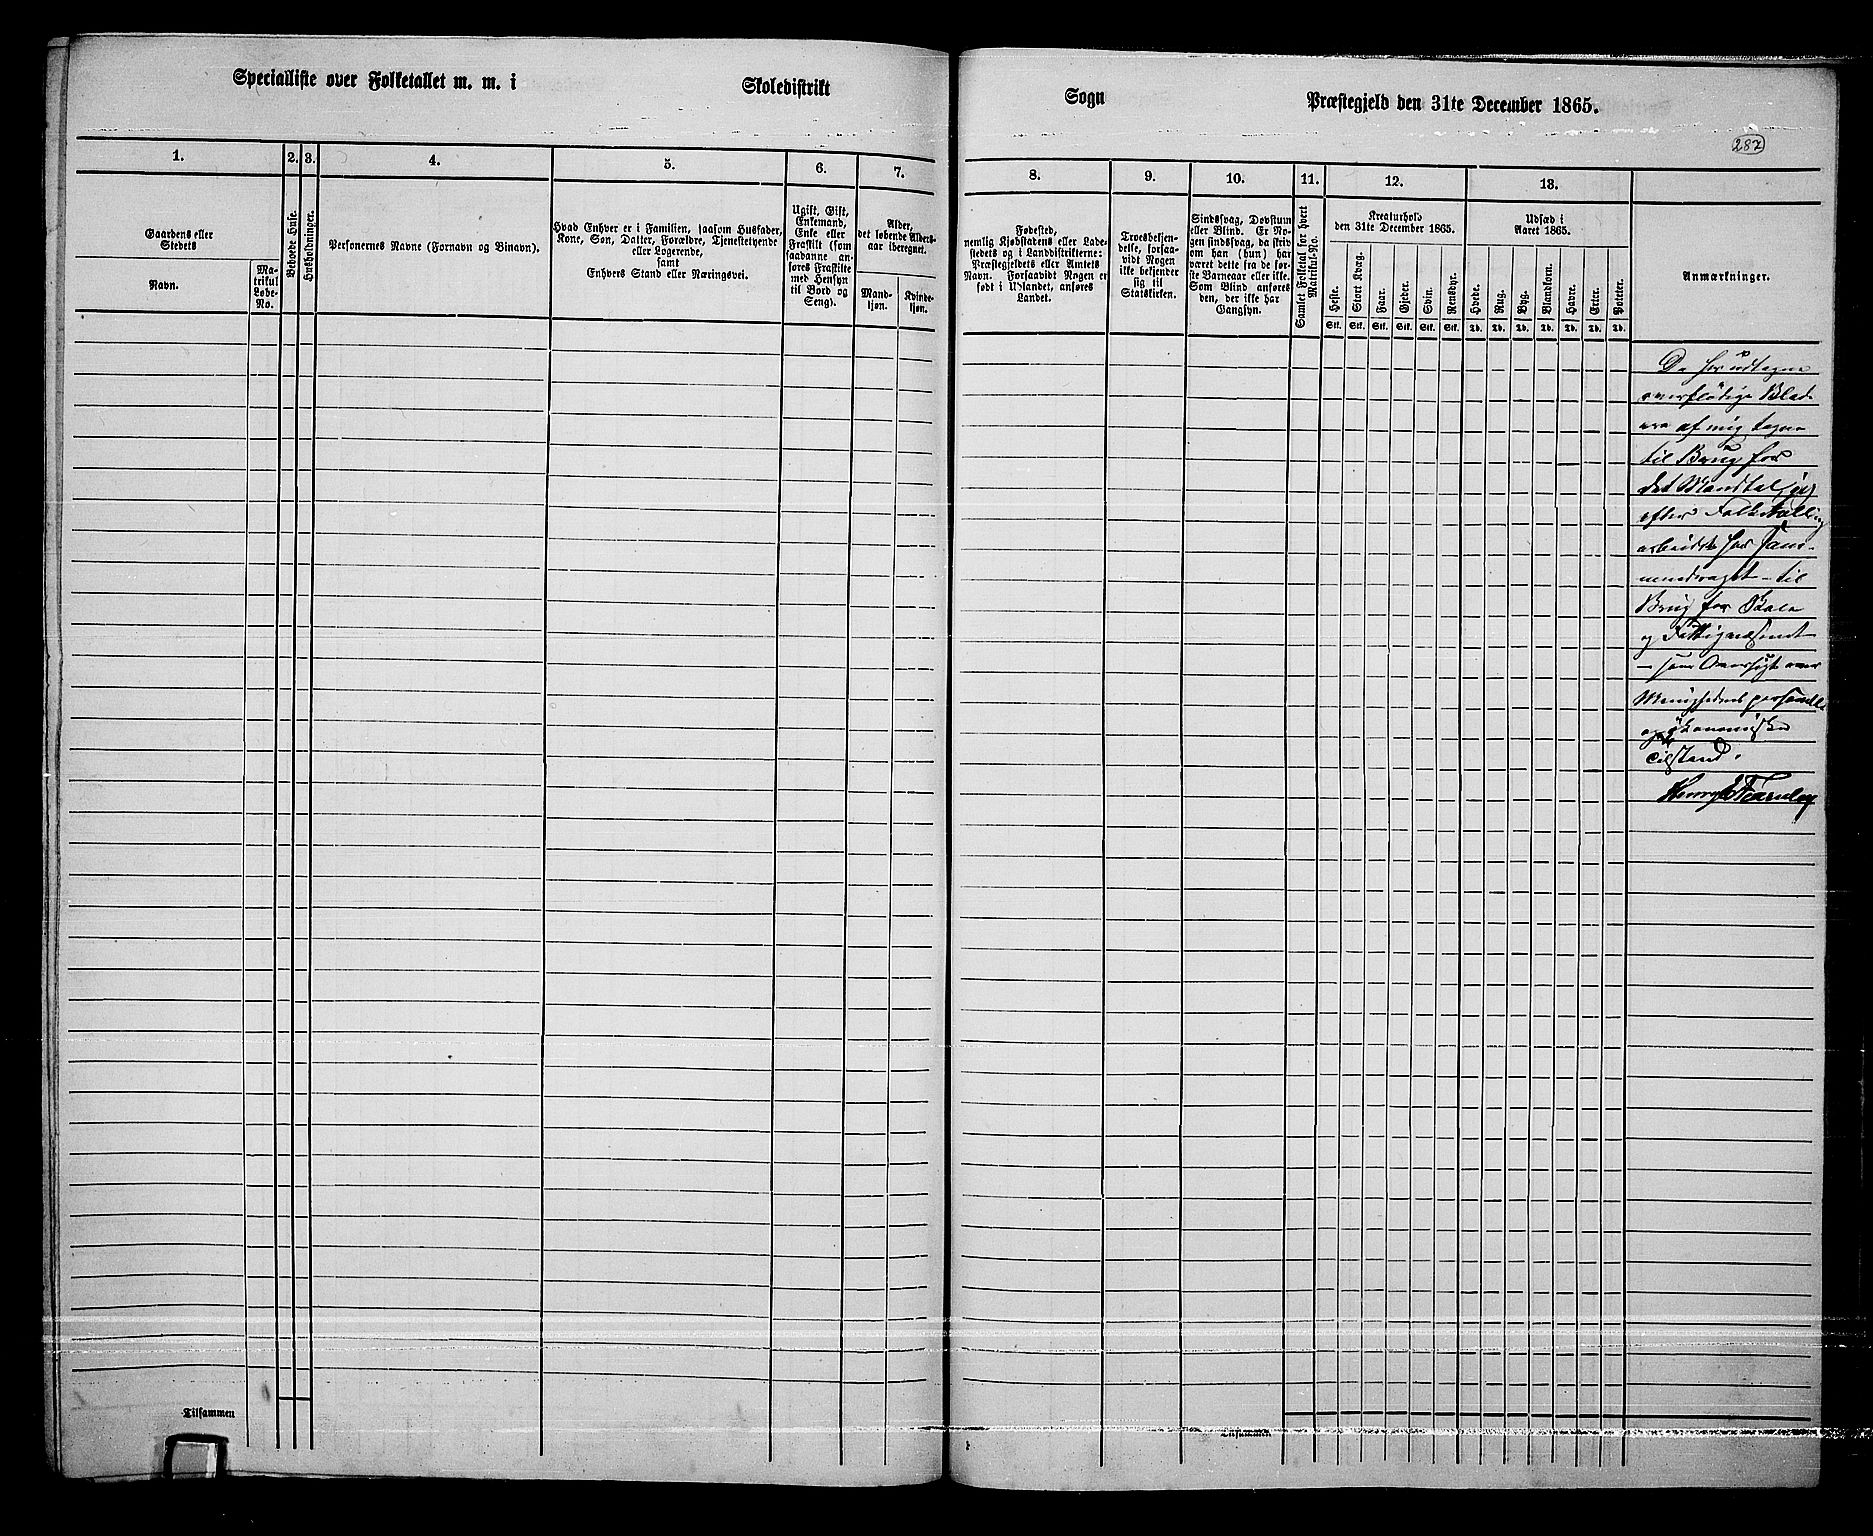 Specialliste over Folketallet m. m. i Skoledistrikt Sogn Præstegjeld den 31te December 1865.
287
1. 2. 3. 4. 5. 6. 7. 8. 9. 10. 11. 12. 13.
Gaardens eller
Stedets
Navn.
Ma-
trikul
Løbe-
No.
Beboede Huse.
Husholdninger.
Personernes Navne (Fornavn og Binavn).
Hvad Enhver er i Familien, saasom Husfader,
Kone, Søn, Datter, Forældre, Tjenestetyende
eller Logerende,
samt
Enhvers Stand eller Næringsvei.
Ugift, Gift,
Enkemand,
Enke eller
Fraskilt (som
saadanne an-
føres Fraskilte
med Hensyn
til Bord og
Seng).
Alder,
det løbende Alders-
aar iberegnet.
Mand-
kjøn.
Kvinde-
kjøn.
Fødested,
nemlig Kjøbstadens eller Lade-
stedets og i Landdistrikterne:
Præstegjeldets eller Amtets
Navn. Forsaavidt Nogen er
født i Udlandet, anføres
Landet.
Troesbekjen-
delse, forsaa-
vidt Nogen
ikke bekjender
sig til
Statskirken.
Sindssvag, Døvstum
eller Blind. Er No-
gen sindssvag, da skriv
om han (hun) har
været dette fra de før-
ste Barneaar eller ikke.
Som Blind anføres
den, der ikke har
Gangsyn.
Samlet Folketal for hvert
Matrikul-No.
Kreaturhold
den 31te December 1865.
Heste.
Stort Kvæg.
Faar.
Gjeder.
Svin.
Rensdyr.
Stk. Stk. Stk. Stk. Stk. Stk.
Udsæd i
Aaret 1865.
Hvede.
Rug.
Byg.
Blandkorn.
Havre.
Erter.
Poteter.
Td. Td. Td. Td. Td. Td. Td.
Anmærkninger.
De her udtagne
overflødige Blade
ere af mig tagne
til Brug for
det Mandtal jeg
efter Folketælling
arbeidet har sam-
mendraget - til
Brug for Skole
og Fattigvæsenet
- som Oversigt over
Menighedens personelle
og økonomiske
Tilstand.
Henry Fearnley
Tilsammen
Tilsammen